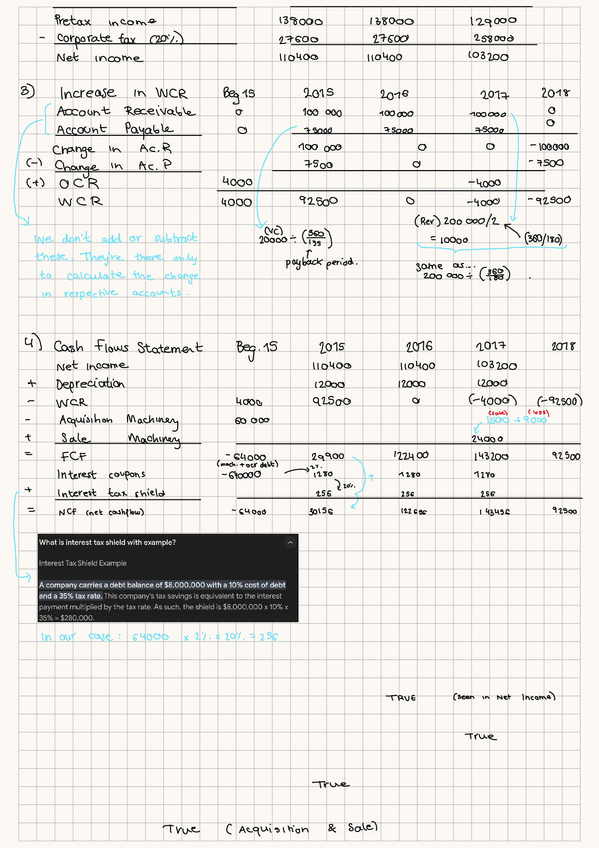 Pretax income 138000 138000 129000
- Corporate tax (20%) 27600 27600 258000
Net income 110400 110400 103200
3) Increase in WCR Beg 15 2015 2016 2017 2018
Account Receivable 0 100 000 100 000 100 000 0
Account Payable 0 75000 75000 75000 0
Change in Ac.R 100 000 0 0 -100000
(-) Change in Ac.P 7500 0 -7500
(+) OCR 4000 -4000
WCR 4000 92500 0 -4000 -92500
We don't add or subtract
these. They're there only
to calculate the change
in respective accounts.
(VC)
20000 ÷ (360/135)
payback period.
(Rev) 200 000/2
= 10000 (360/180)
same as...
200 000 ÷ (360/180)
4) Cash Flows Statement Beg. 15 2015 2016 2017 2018
Net Income 110400 110400 103200
+ Depreciation 12000 12000 12000
- WCR 4000 92500 0 (-4000) (-92500)
- Acquisition Machinery 60 000 (sale) (loss)
1500 + 9000
+ Sale Machinery 24000
= FCF -64000 29900 122400 143200 92500
(mach. + ocr debt) 2%
Interest coupons -640000 1280 1280 1280
20% +
+ Interest tax shield 256 256 256
= NCF (net cashflow) -64000 30156 122656 143456 92500
What is interest tax shield with example?
Interest Tax Shield Example
A company carries a debt balance of $8,000,000 with a 10% cost of debt
and a 35% tax rate. This company's tax savings is equivalent to the interest
payment multiplied by the tax rate. As such, the shield is $8,000,000 x 10% x
35% = $280,000.
In our case: 64000 x 2% x 20% = 256
TRUE (seen in Net Income)
True
True
True (Acquisition & Sale)